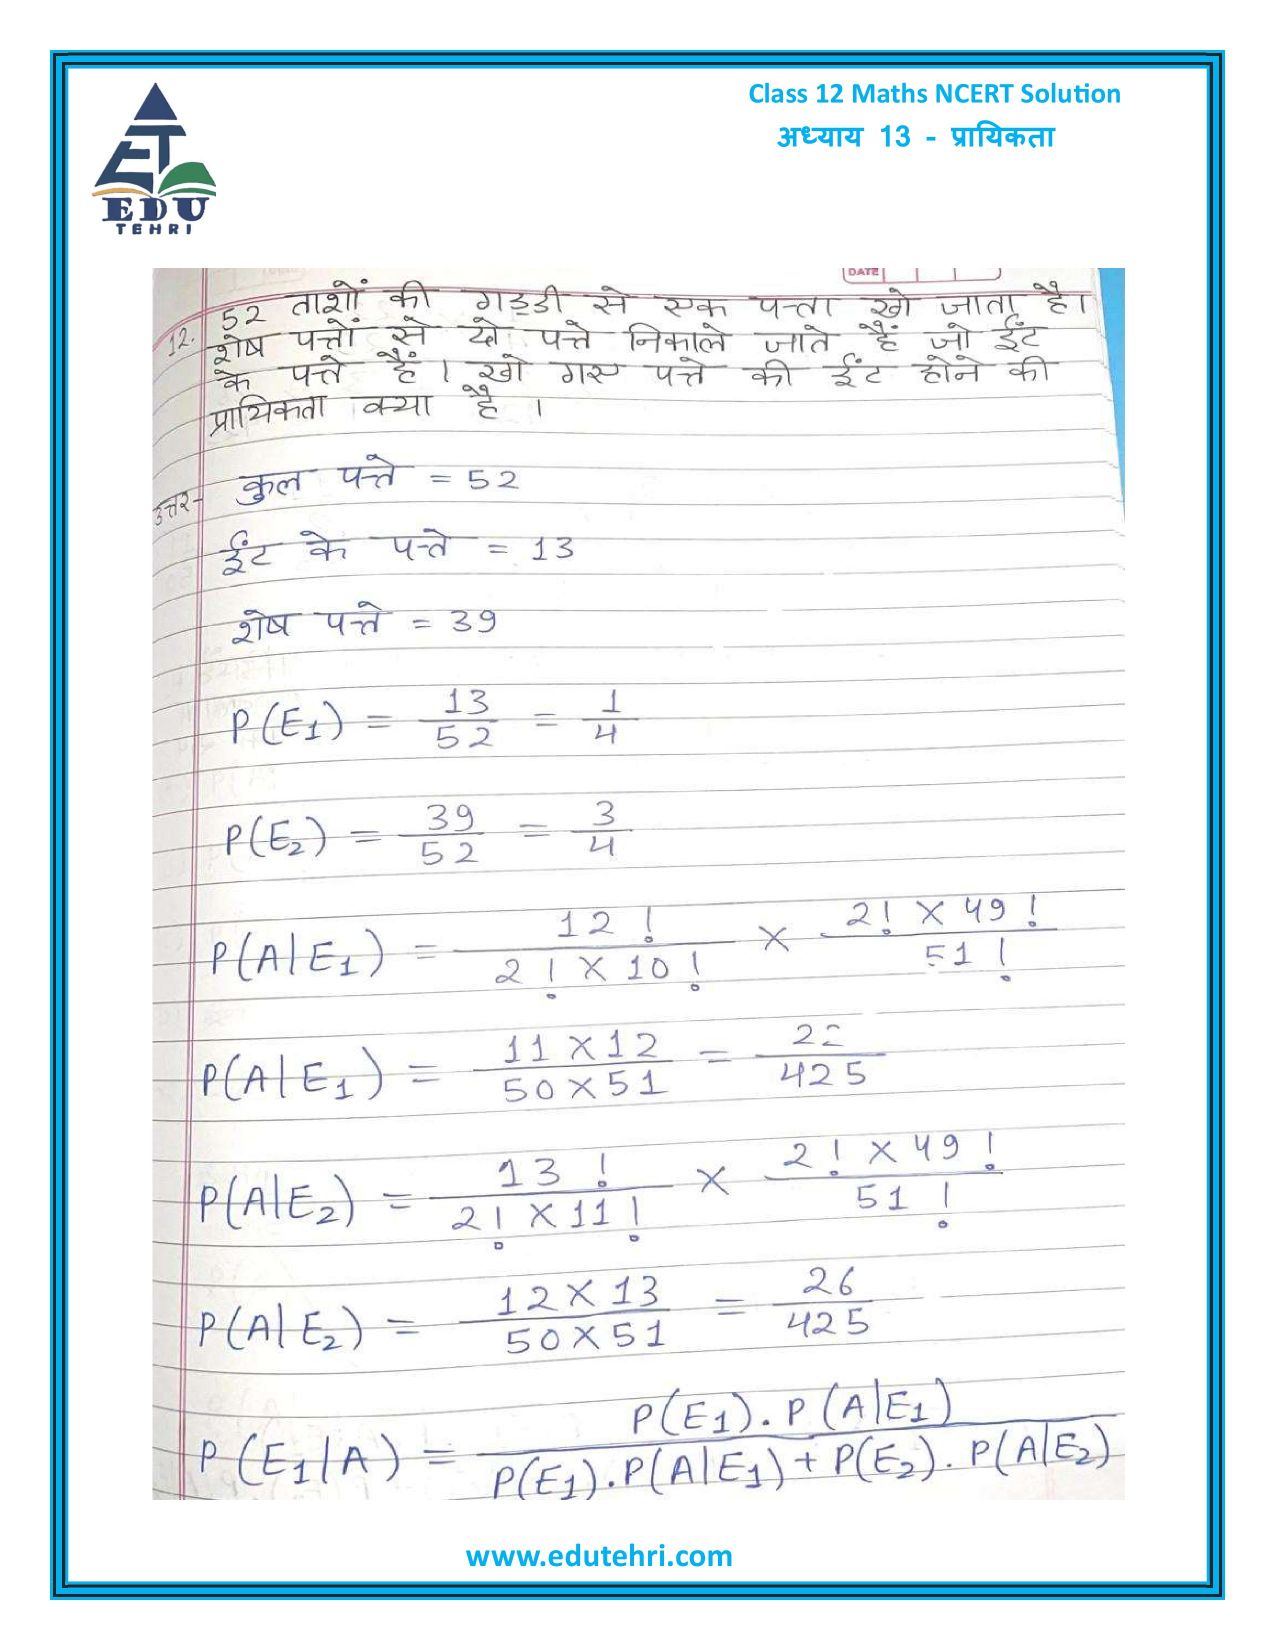 Class 12 Maths NCERT Solution
अध्याय 13 - प्रायिकता
EDU
TEHRI
DATE
12. 52 ताशों की गड्डी से एक पत्ता खो जाता है।
शेष पत्तों से दो पत्ते निकाले जाते हैं जो ईंट
के पत्ते हैं। खो गए पत्ते की ईंट होने की
प्रायिकता क्या है।
उत्तर- कुल पत्ते = 52
ईंट के पत्ते = 13
शेष पत्ते = 39
P(E1) = 13/52 = 1/4
P(E2) = 39/52 = 3/4
P(A|E1) = 12!/(2! × 10!) × (2! × 49!)/51!
P(A|E1) = (11 × 12)/(50 × 51) = 22/425
P(A|E2) = 13!/(2! × 11!) × (2! × 49!)/51!
P(A|E2) = (12 × 13)/(50 × 51) = 26/425
P(E1|A) = P(E1).P(A|E1)/(P(E1).P(A|E1) + P(E2).P(A|E2))
www.edutehri.com